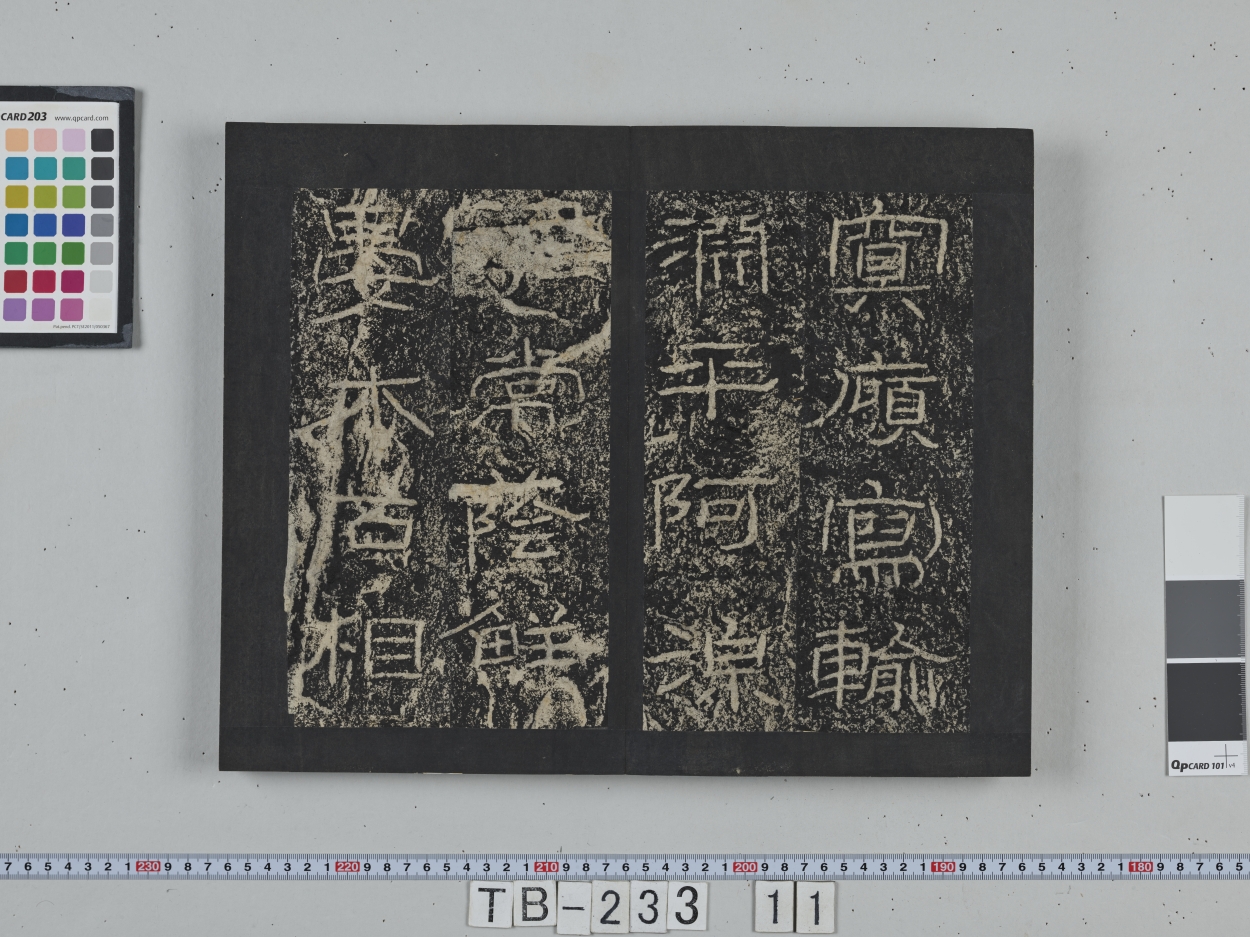 CARD 203 www.qpcard.com
冥廎寫輸
淵平阿湶
泥常蔭鮮
晏木石相
QPCARD 101 v4
7 6 5 4 3 2 1 230 9 8 7 6 5 4 3 2 1 220 9 8 7 6 5 4 3 2 1 210 9 8 7 6 5 4 3 2 1 200 9 8 7 6 5 4 3 2 1 190 9 8 7 6 5 4 3 2 1 180 9 8 7 6 5
TB-233 11